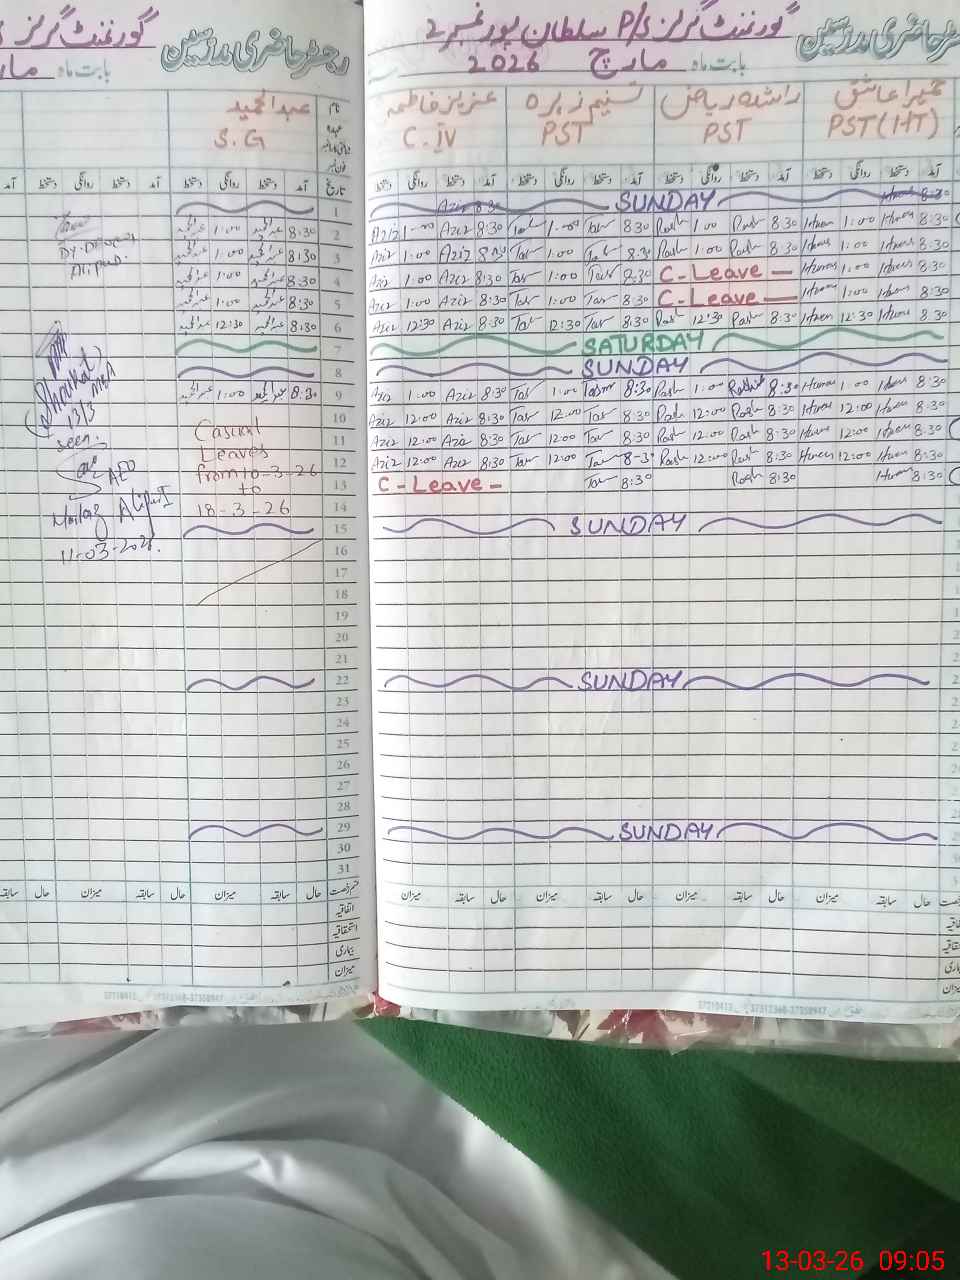 گورنمنٹ گرلز P/S سلطان پور نمبر 2
رجسٹر حاضری مدرسین
بابت ماہ مارچ 2026
حمیرا عاشق
PST (HT)
راشدہ ریاض
PST
تسنیم زہرہ
PST
عزیز فاطمہ
C.IV
آمد دستخط روانگی دستخط آمد دستخط روانگی دستخط آمد دستخط روانگی دستخط آمد دستخط روانگی دستخط
SUNDAY
Aziz 1:00 Aziz 8:30 Tas 1:00 Tas 8:30 Rash 1:00 Rash 8:30 Humera 1:00 Humera 8:30
Aziz 1:00 Aziz 8:30 Tas 1:00 Tas 8:30 Rash 1:00 Rash 8:30 Humera 1:00 Humera 8:30
Aziz 1:00 Aziz 8:30 Tas 1:00 Tas 8:30 C-Leave Humera 1:00 Humera 8:30
Aziz 1:00 Aziz 8:30 Tas 1:00 Tas 8:30 C-Leave Humera 1:00 Humera 8:30
Aziz 12:30 Aziz 8:30 Tas 12:30 Tas 8:30 Rash 12:30 Rash 8:30 Humera 12:30 Humera 8:30
SATURDAY
SUNDAY
Aziz 1:00 Aziz 8:30 Tas 1:00 Tasnim 8:30 Rash 1:00 Rashid 8:30 Humera 1:00 Humera 8:30
Aziz 12:00 Aziz 8:30 Tas 12:00 Tas 8:30 Rash 12:00 Rash 8:30 Humera 12:00 Humera 8:30
Aziz 12:00 Aziz 8:30 Tas 12:00 Tas 8:30 Rash 12:00 Rash 8:30 Humera 12:00 Humera 8:30
Aziz 12:00 Aziz 8:30 Tas 12:00 Tas 8:30 Rash 12:00 Rash 8:30 Humera 12:00 Humera 8:30
C-Leave Tas 8:30 Rash 8:30 Humera 8:30
SUNDAY
SUNDAY
SUNDAY
حال سابقہ میزان حال سابقہ میزان حال سابقہ میزان حال سابقہ میزان
گورنمنٹ گرلز
رجسٹر حاضری مدرسین
بابت ماہ
نام
عہدہ
عبدالحمید
S.G
تاریخ آمد دستخط روانگی دستخط آمد دستخط روانگی دستخط آمد
1
2 8:30 عبدالحمید 1:00 عبدالحمید
3 8:30 عبدالحمید 1:00 عبدالحمید
4 8:30 عبدالحمید 1:00 عبدالحمید
5 8:30 عبدالحمید 1:00 عبدالحمید
6 8:30 عبدالحمید 12:30 عبدالحمید
7
8
9 8:30 عبدالحمید 1:00 عبدالحمید
10
11
12
13
14
15
16
17
18
19
20
21
22
23
24
25
26
27
28
29
30
31
Casual
Leaves
from 10-3-26
to
18-3-26
Alipur
Shaukat
MEA
13/3
Seen
AEO
Alipur I
11-03-2026.
حال سابقہ میزان حال سابقہ میزان حال سابقہ
اتفاقیہ
استحقاقیہ
بیماری
میزان
13-03-26 09:05